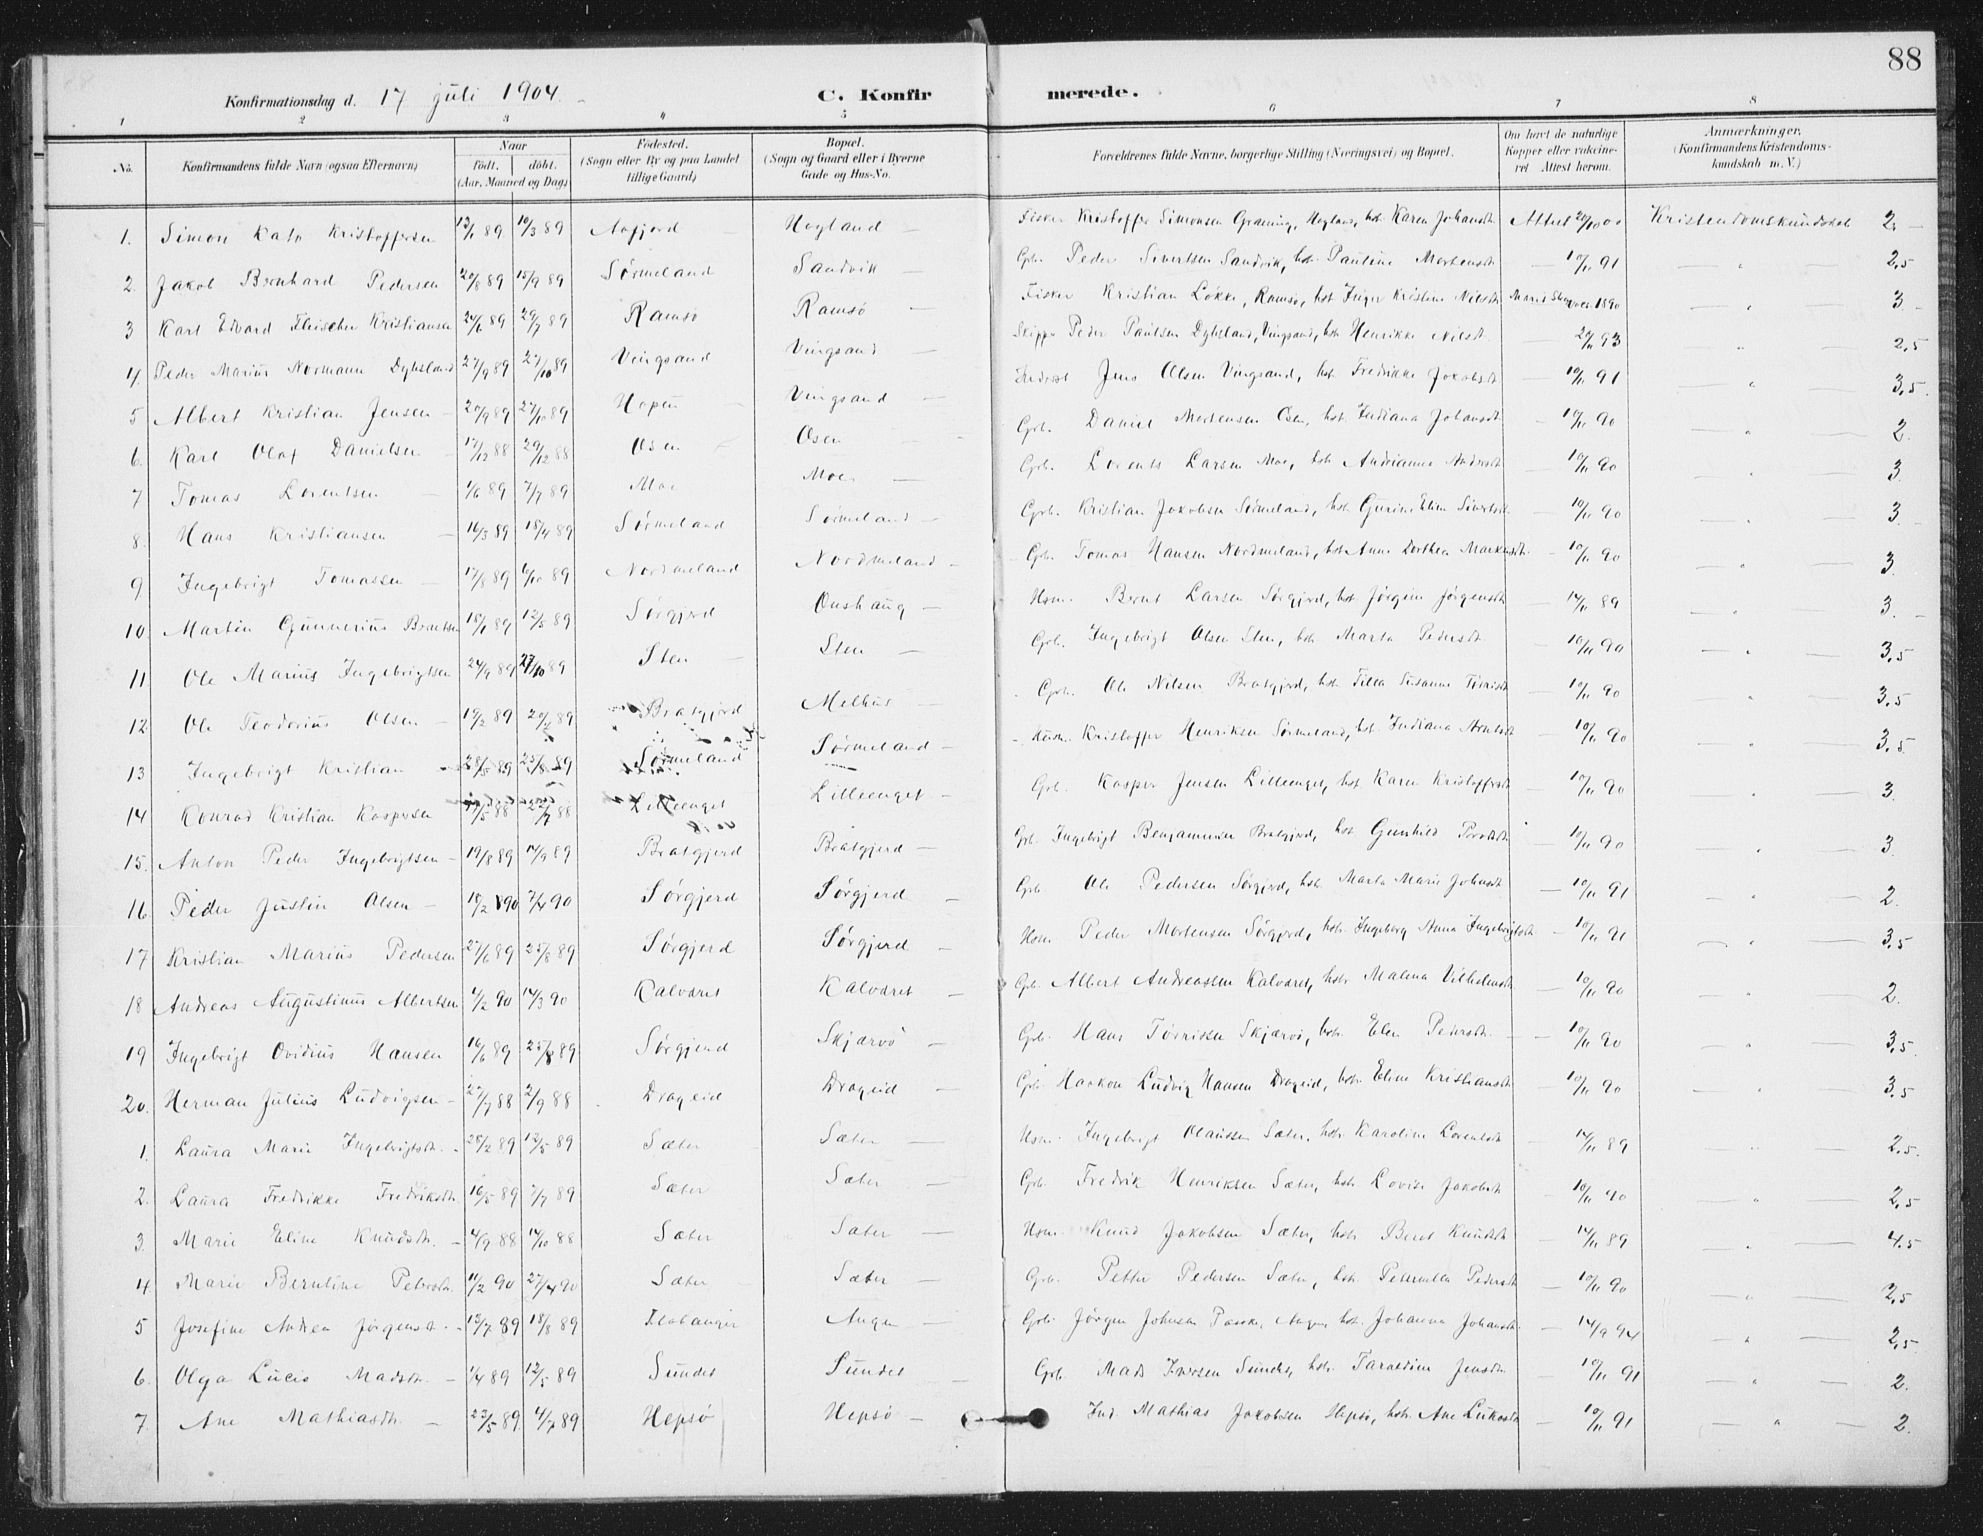 88
Konfirmationsdag d. 17 juli 1904. C. Konfir merede.
1 2 3 4 5 6 7 8
No. Konfirmandens fulde Navn (ogsaa Efternavn) Naar födt, döbt. (Aar, Maaned og Dag) Födested. (Sogn eller By og paa Landet tillige Gaard) Bopæl. (Sogn og Gaard eller i Byerne Gade og Hus-No. Forældrenes fulde Navne, borgerlige Stilling (Næringsvei) og Bopæl. Om havt de naturlige Kopper eller vakcineret Attest herom. Anmærkninger, (Konfirmandens Kristendomskundskab m. V.)
1. Simon Kato Kristoffersen 12/1 89 10/3 89 Aafjord Hogland Fisker Kristoffer Simonsen Hogland, hst. Karen Johansdt. Attest 20/10 00 Kristendomskundskab 2
2. Jakob Bernhard Pedersen 20/8 89 15/9 89 Sørmeland Sandvik Gbr. Peder Sivertsen Sandvik, hst. Pauline Mortensdt. 10/11 91 " 2,5
3 Karl Edvard Fleischer Kristiansen 24/6 89 29/7 89 Ramsø Ramsø Fisker Kristian Løkke, Ramsø, hst. Inger Kristine Nilsdt. 1890 " 3
4. Peder Marius Normann Dybsland 27/9 89 27/10 89 Vingsand Vingsand Skipper Peder Paulsen Dybsland, Vingsand, hst. Henrikke Nilsdt. 93 " 2,5
5 Albert Kristian Jensen 20/9 89 27/10 89 Hopen Vingsand Jens Olsen Vingsand, hst. Fredrikke Jakobsdt. 10/11 91 " 3,5
6. Karl Olaf Danielsen 17/12 88 29/12 88 Osen Osen Grb. Daniel Mortensen Osen, hst. Indiana Johansdt. 10/11 90 " 2.
7 Tomas Lorentsen 1/6 89 7/7 89 Moe Moe Grb. Lorents Larsen Moe, hst. Andrianna Andersdt. 10/11 90 " 3.
8. Hans Kristiansen 16/3 89 18/4 89 Sørmeland Sørmeland Grb. Kristian Jakobsen Sørmeland, hst. Gurine Elen Sivertsdt. 10/11 90 " 3
9 Ingebrigt Tomassen 17/8 89 6/10 89 Nordmeland Nordmeland Grb. Tomas Hansen Nordmeland, hst. Anne Dorthea Markusdt. 10/11 90 " 3.
10. Martin Gunnerius Berntsen 18/1 89 12/5 89 Sørgjerd Onshaug Hsm. Bernt Larsen Sørgjerd, hst. Jørgine Jørgensdt. 14/11 89 " 3.
11. Ole Marius Ingebrigtsen 24/9 89 27/10 89 Sten Sten Grb. Ingebrigt Olsen Sten, hst. Marta Pedersdt. 10/11 90 " 3,5
12. Ole Teodorius Olsen 19/2 89 89 Bratgjerd Melhus Grb. Ole Nilsen Bratgjerd, hst. Susanna 10/11 90 " 3,5
13 Ingebrigt Kristian 28/5 89 25/8 89 Sørmeland Sørmeland Husm. Kristoffer Henriksen Sørmeland, hst. Indiana Arntsdt. 10/11 90 " 3,5
14 Konrad Kristian Kaspersen 88 22/7 88 Lilleenget Lilleenget Grb. Kasper Jensen Lilleenget, hst. Karen Kristoffersdt. 10/11 90 " 3.
15. Anton Peder Ingebrigtsen 19/8 89 89 Bratgjerd Bratgjerd Grb. Ingebrigt Benjaminsen Bratgjerd, hst. Gunhild 10/11 90 " 3.
16 Peder Justin Olsen 18/2 90 7/4 90 Sørgjerd Sørgjerd Grb. Ole Pedersen Sørgjerd, hst. Marta Marie Johansdt. 10/11 91 " 2.
17 Kristian Marius Pedersen 27/6 89 25/8 89 Sørgjerd Sørgjerd Hsm. Peder Mortensen Sørgjerd, hst. Ingeborg Anna Ingebrigtsdt. 10/11 91 " 3,5
18 Andreas Augustinus Albertsen 4/2 90 14/3 90 Kalvaret Kalvaret Grb. Albert Andreassen Kalvaret, hst. Malena Vilhelmsdt. 10/11 90 " 2.
19 Ingebrigt Ovidius Hansen 16/6 89 25/8 89 Sørgjerd Skjærvø Grb. Hans Tørrissen Skjærvø, hst. Elen Pedersdt. 10/11 90 " 3,5
20. Herman Julius Ludvigsen 27/7 88 2/9 88 Drageid Drageid Grb. Haakon Ludvig Hansen Drageid, hst. Eline Kristiansdt. 10/11 90 " 3,5
1. Laura Marie Ingebrigtsdt. 28/2 89 12/5 89 Sæter Sæter Hsm. Ingebrigt Olaussen Sæter, hst. Karoline Lorentsdt. 14/11 89 " 2,5.
2. Laura Fredrikke Fredriksdt. 16/5 89 7/7 89 Sæter Sæter Grb. Fredrik Henriksen Sæter, hst. Lovise Jakobsdt. 10/11 90 " 2,5
3. Marie Eline Knudsdt. 4/9 88 14/10 88 Sæter Sæter Hsm. Knud Jakobsen Sæter, hst. Beret Knudsdt. 14/11 89 " 4,5
4 Marie Berntine Petersdt. 11/2 90 27/4 90 Sæter Sæter Grb. Petter Pedersen Sæter, hst. Petternilla Pedersdt. 10/11 90 " 2,5
5 Josefine Andrea Jørgensdt. 12/7 89 18/8 89 Flatanger Angen Grb. Jørgen Johnsen Angen, hst. Johanna Johansdt. 14/9 94 " 2,5
6. Olga Lucie Madsdt. 1/4 89 12/5 89 Sundet Sundet Grb. Mads Iversen Sundet, hst. Taraldine Jensdt. 10/11 91 " 2.
7. Ane Mathiasdt. 23/5 89 4/7 89 Hepsø Hepsø Ind. Mathias Jakobsen Hepsø, hst. Ane Lukasdt. 10/11 91 " 2.